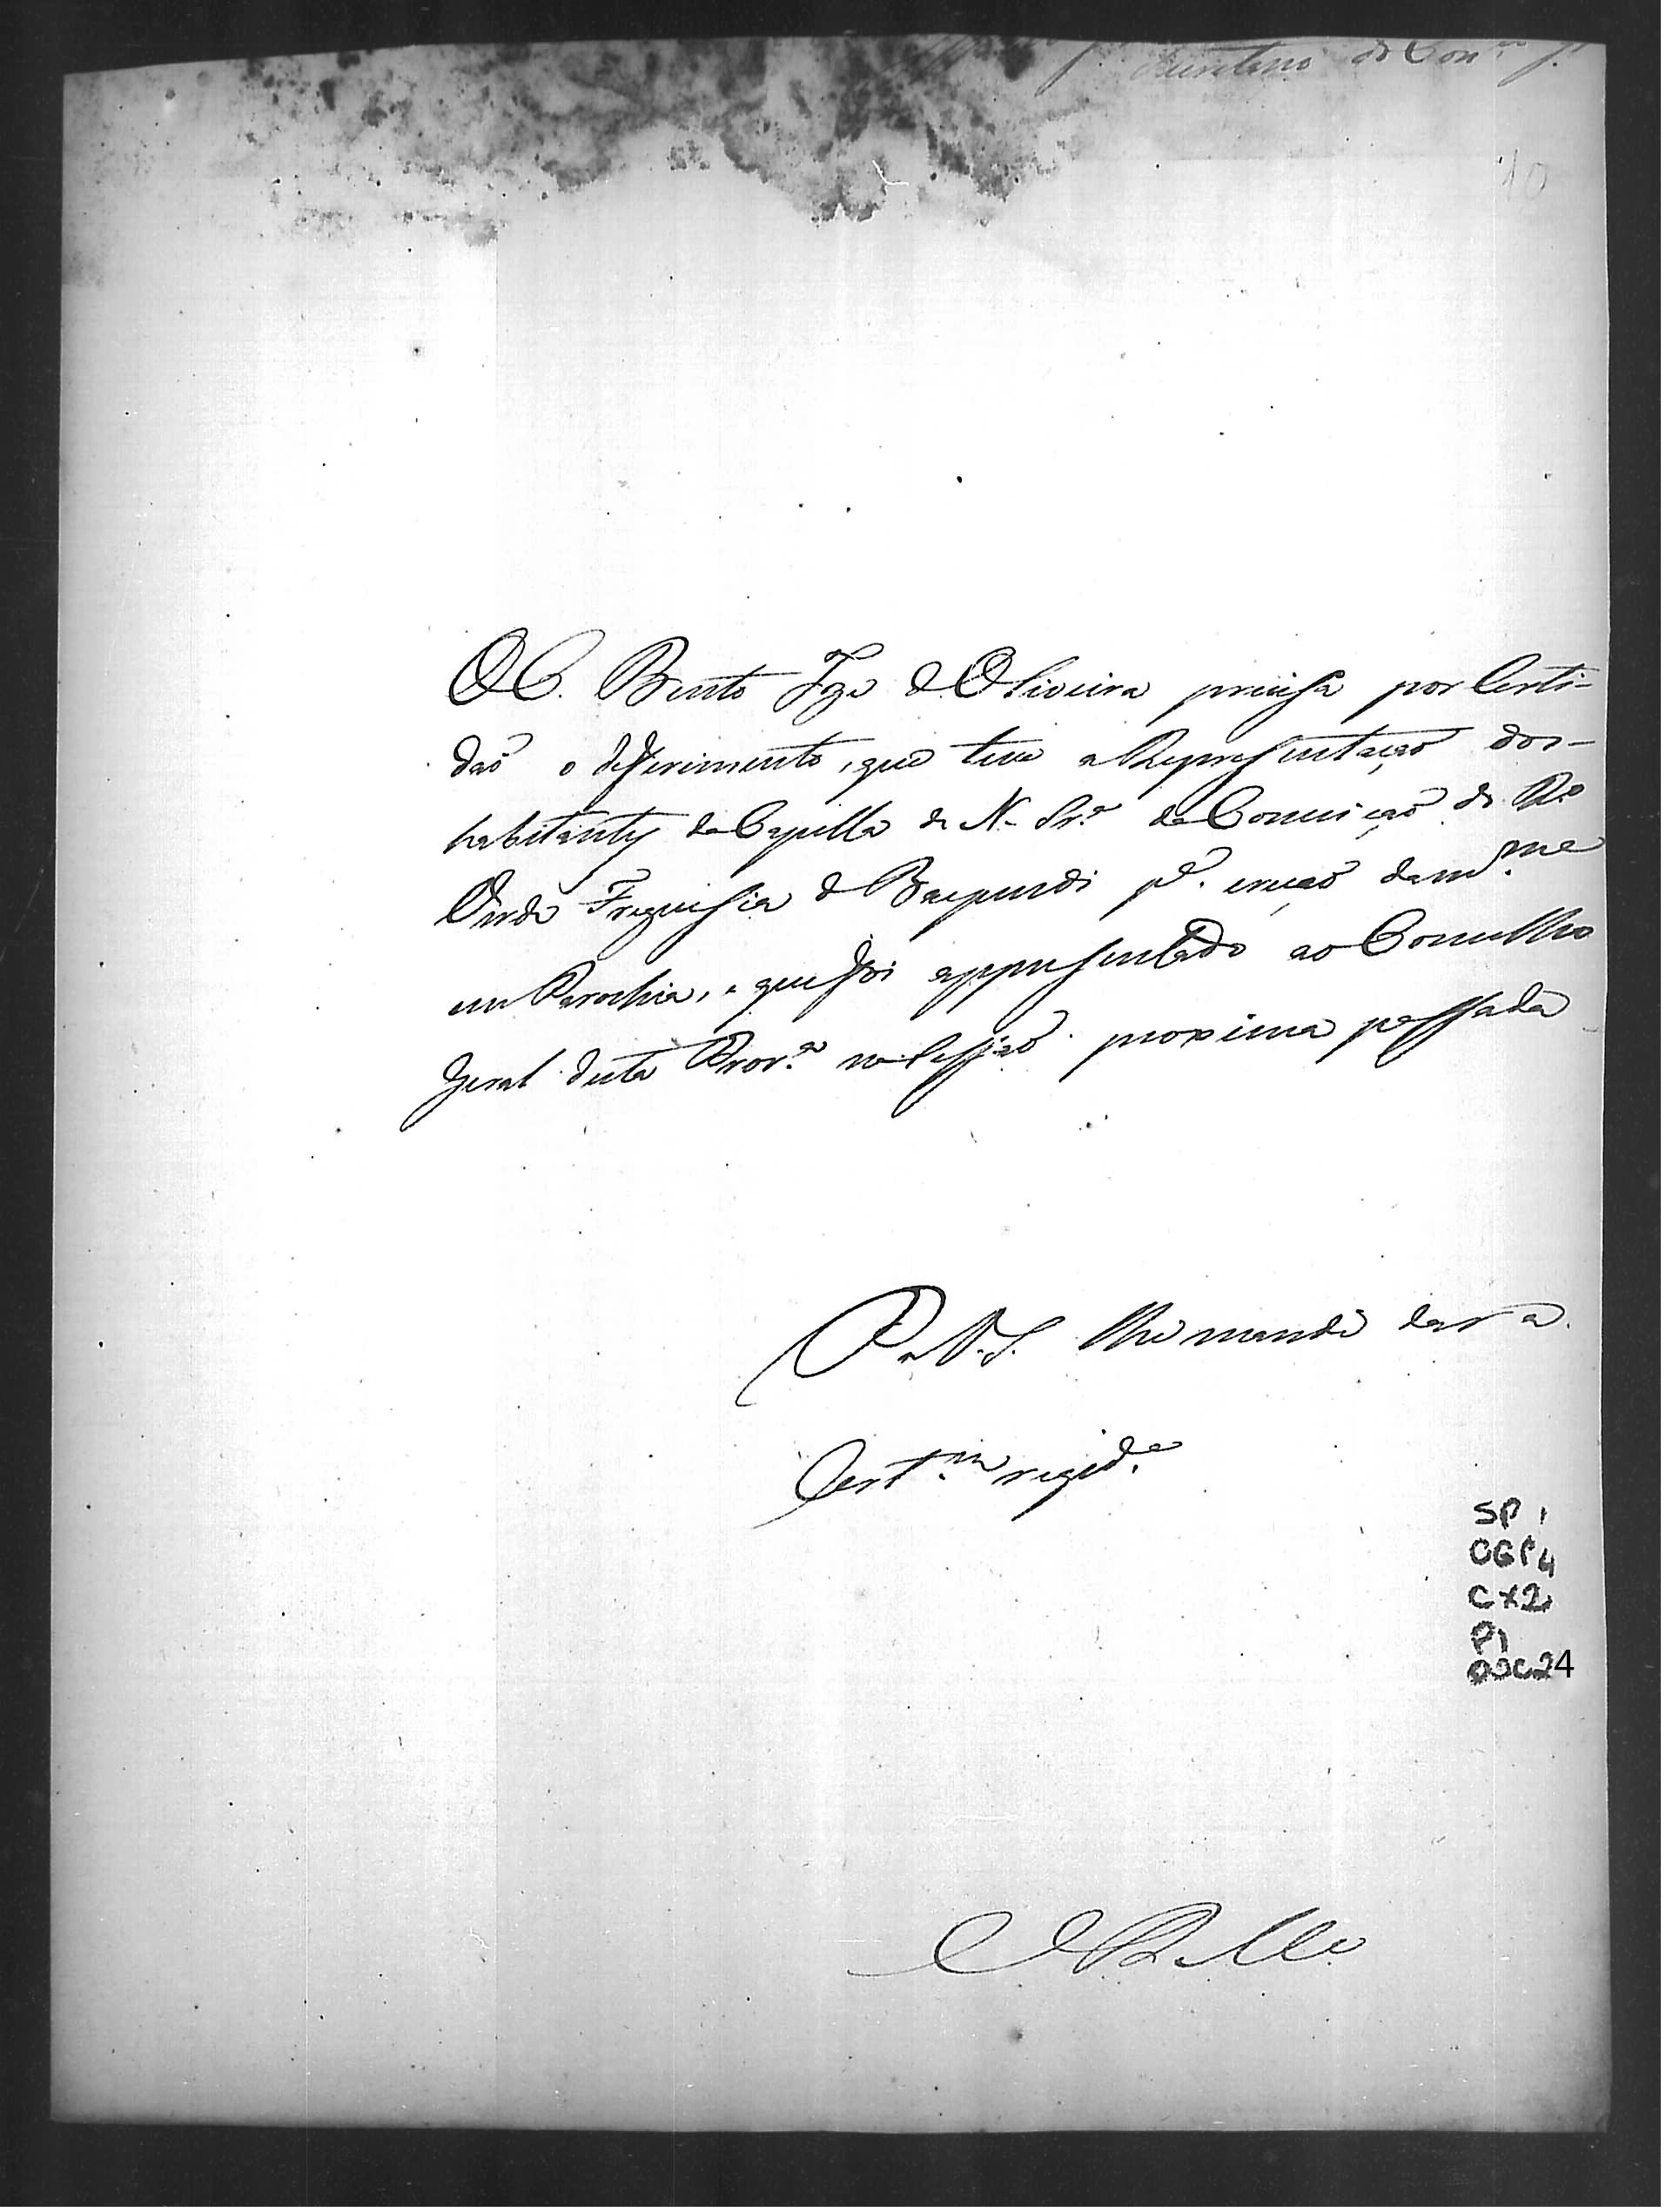 Secretario do Con.
10
O C. Bento Joze d'Oliveira precisa por Certi-
daõ o defferimento, que teve a Reprezentaçaõ dos
habitantes da Capella de N. Sr.ª da Conceiçaõ do R.º
Verde Freguesia de Baependi p.ª ereçaõ da m.ma
em Parochia, e que foi apprezentado ao Concelho
Geral desta Prov.ª na Sessaõ proxima passada
P. a V. S. lhe mande dar a
Cert.m reqd.ª
E R Mce
SP 1
CGP4
CX2
P1
DOC24